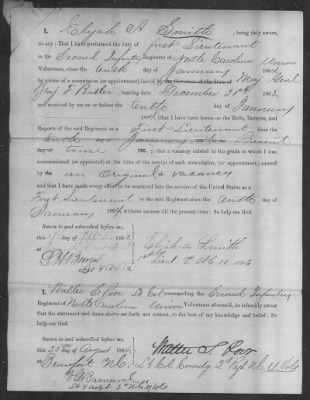 I, Elijah A Smith, being duly sworn,
do say: That I have performed the duty of First Lieutenant
in the Second Infantry Regiment of North Carolina Union
Volunteers, since the tenth day of January 186
by virtue of a commission (or appointment) issued by the Governor of the State of Maj Genl
Benj F Butler, bearing date December 31st 186
and received by me on or before the tenth day of January
that I have been borne on the Rolls, Returns, and
Reports of the said Regiment as a First Lieutenant from the
tenth day of January to the Present
day of time; that a vacancy existed in the grade to which I was
commissioned (or appointed) at the time of the receipt of such commission, (or appointment,) caused
by the an Original vacancy
and that I have made every effort to be mustered into the service of the United States as a
First Lieutenant to the said Regiment since the tenth day of
January 1864, without success till the present time: So help me God.
Sworn to and subscribed before me
this day of 186
Elijah A Smith
1st Lieut
2, Walter S. Poor Lt Col commanding the Second Infantry
Regiment of North Carolina Union Volunteers aforesaid, do solemnly swear
that the statement and dates above set forth are correct, to the best of my knowledge and belief: So
help me God.
Sworn to and subscribed before me
this 25th day of August 186
Beaufort N.C.
Walter S. Poor
Lt Col Comdg 2d Regt N.C. U. Vols